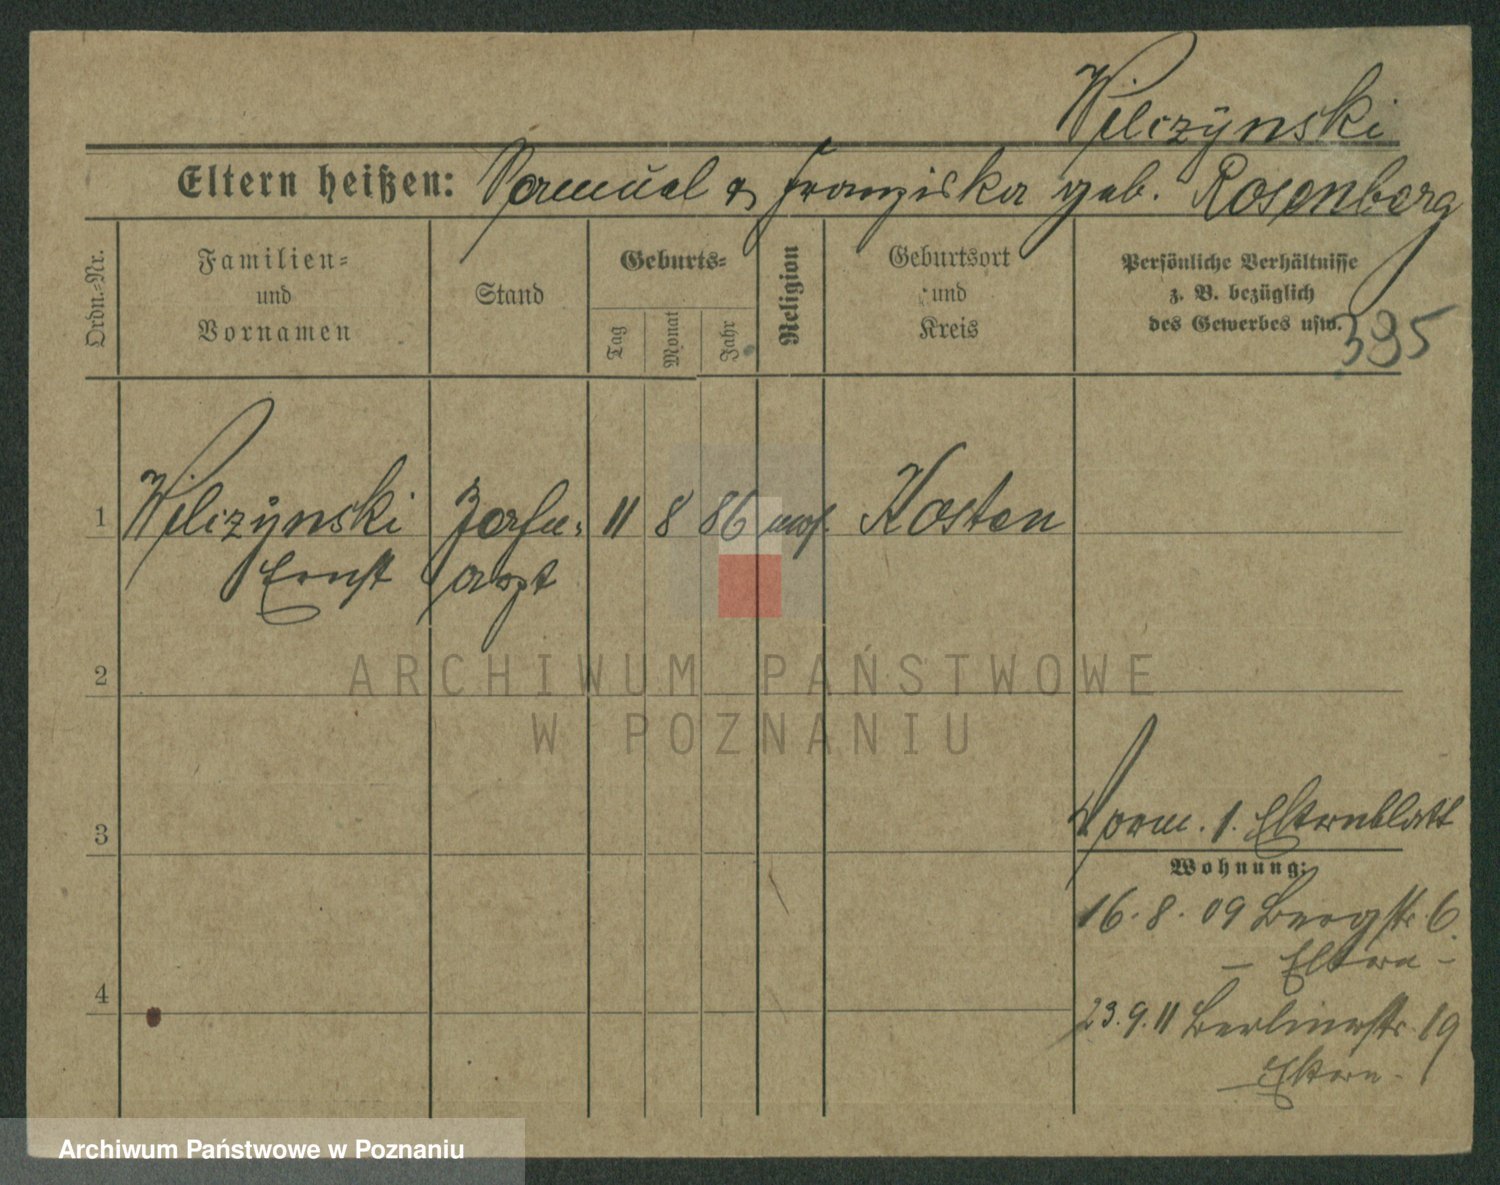 Wilczÿnski
Eltern heißen: Samuel & Franziska geb. Rosenberg
Ordn.-Nr.
Familien-
und
Vornamen
Stand
Geburts-
Tag
Monat
Jahr
Religion
Geburtsort
und
Kreis
Persönliche Verhältnisse
z. B. bezüglich
des Gewerbes usw.
395
1 Wilczÿnski Zahn- 11 8 86 mos. Kosten
Ernst arzt
2
ARCHIWUM PAŃSTWOWE
W POZNANIU
3
Vorm. 1. Elternblatt
Wohnung:
16.8.09 Bergstr. 6.
– Eltern –
4
23.9.11 Berlinerstr. 19
– Eltern –
Archiwum Państwowe w Poznaniu